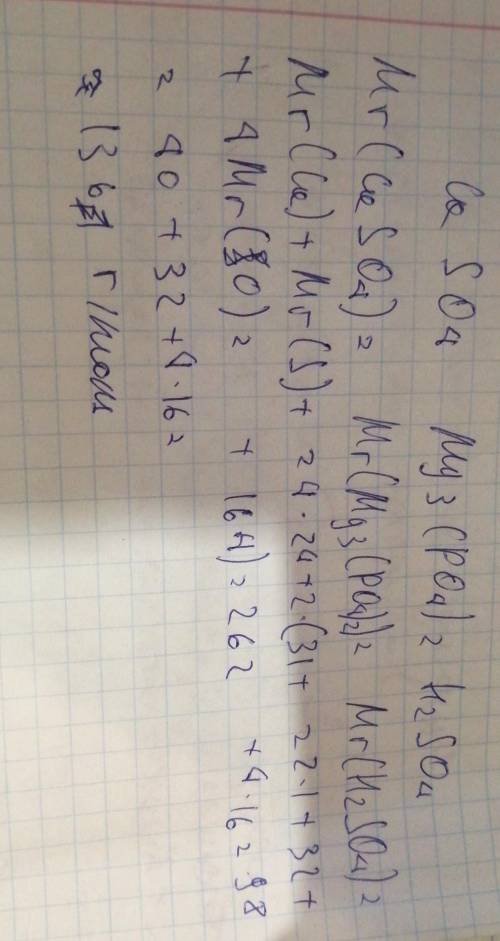 CaSO4 Mg3(PO4)2 H2SO4
Mr(CaSO4)= Mr(Mg3(PO4)2)= Mr(H2SO4)=
Mr(Ca)+Mr(S)+ =4·24+2·(31+ =2·1+32+
+4Mr(O)= +16·4)=262 +4·16=98
=40+32+4·16=
=136 г/моль